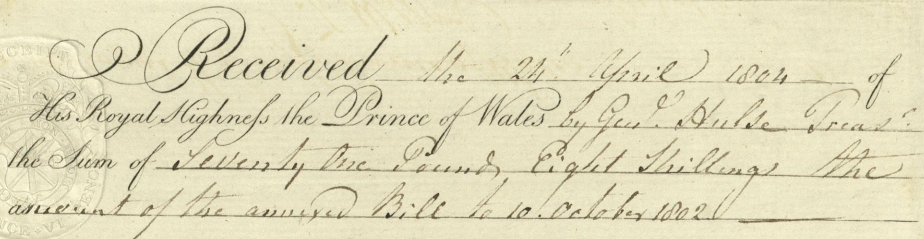 Received the 24th April 1804 of
His Royal Highneſs the Prince of Wales by Genl. Hulse Treasr.
the Sum of Seventy One Pounds Eight Shillings the
amount of the annexed Bill to 10. October 1802